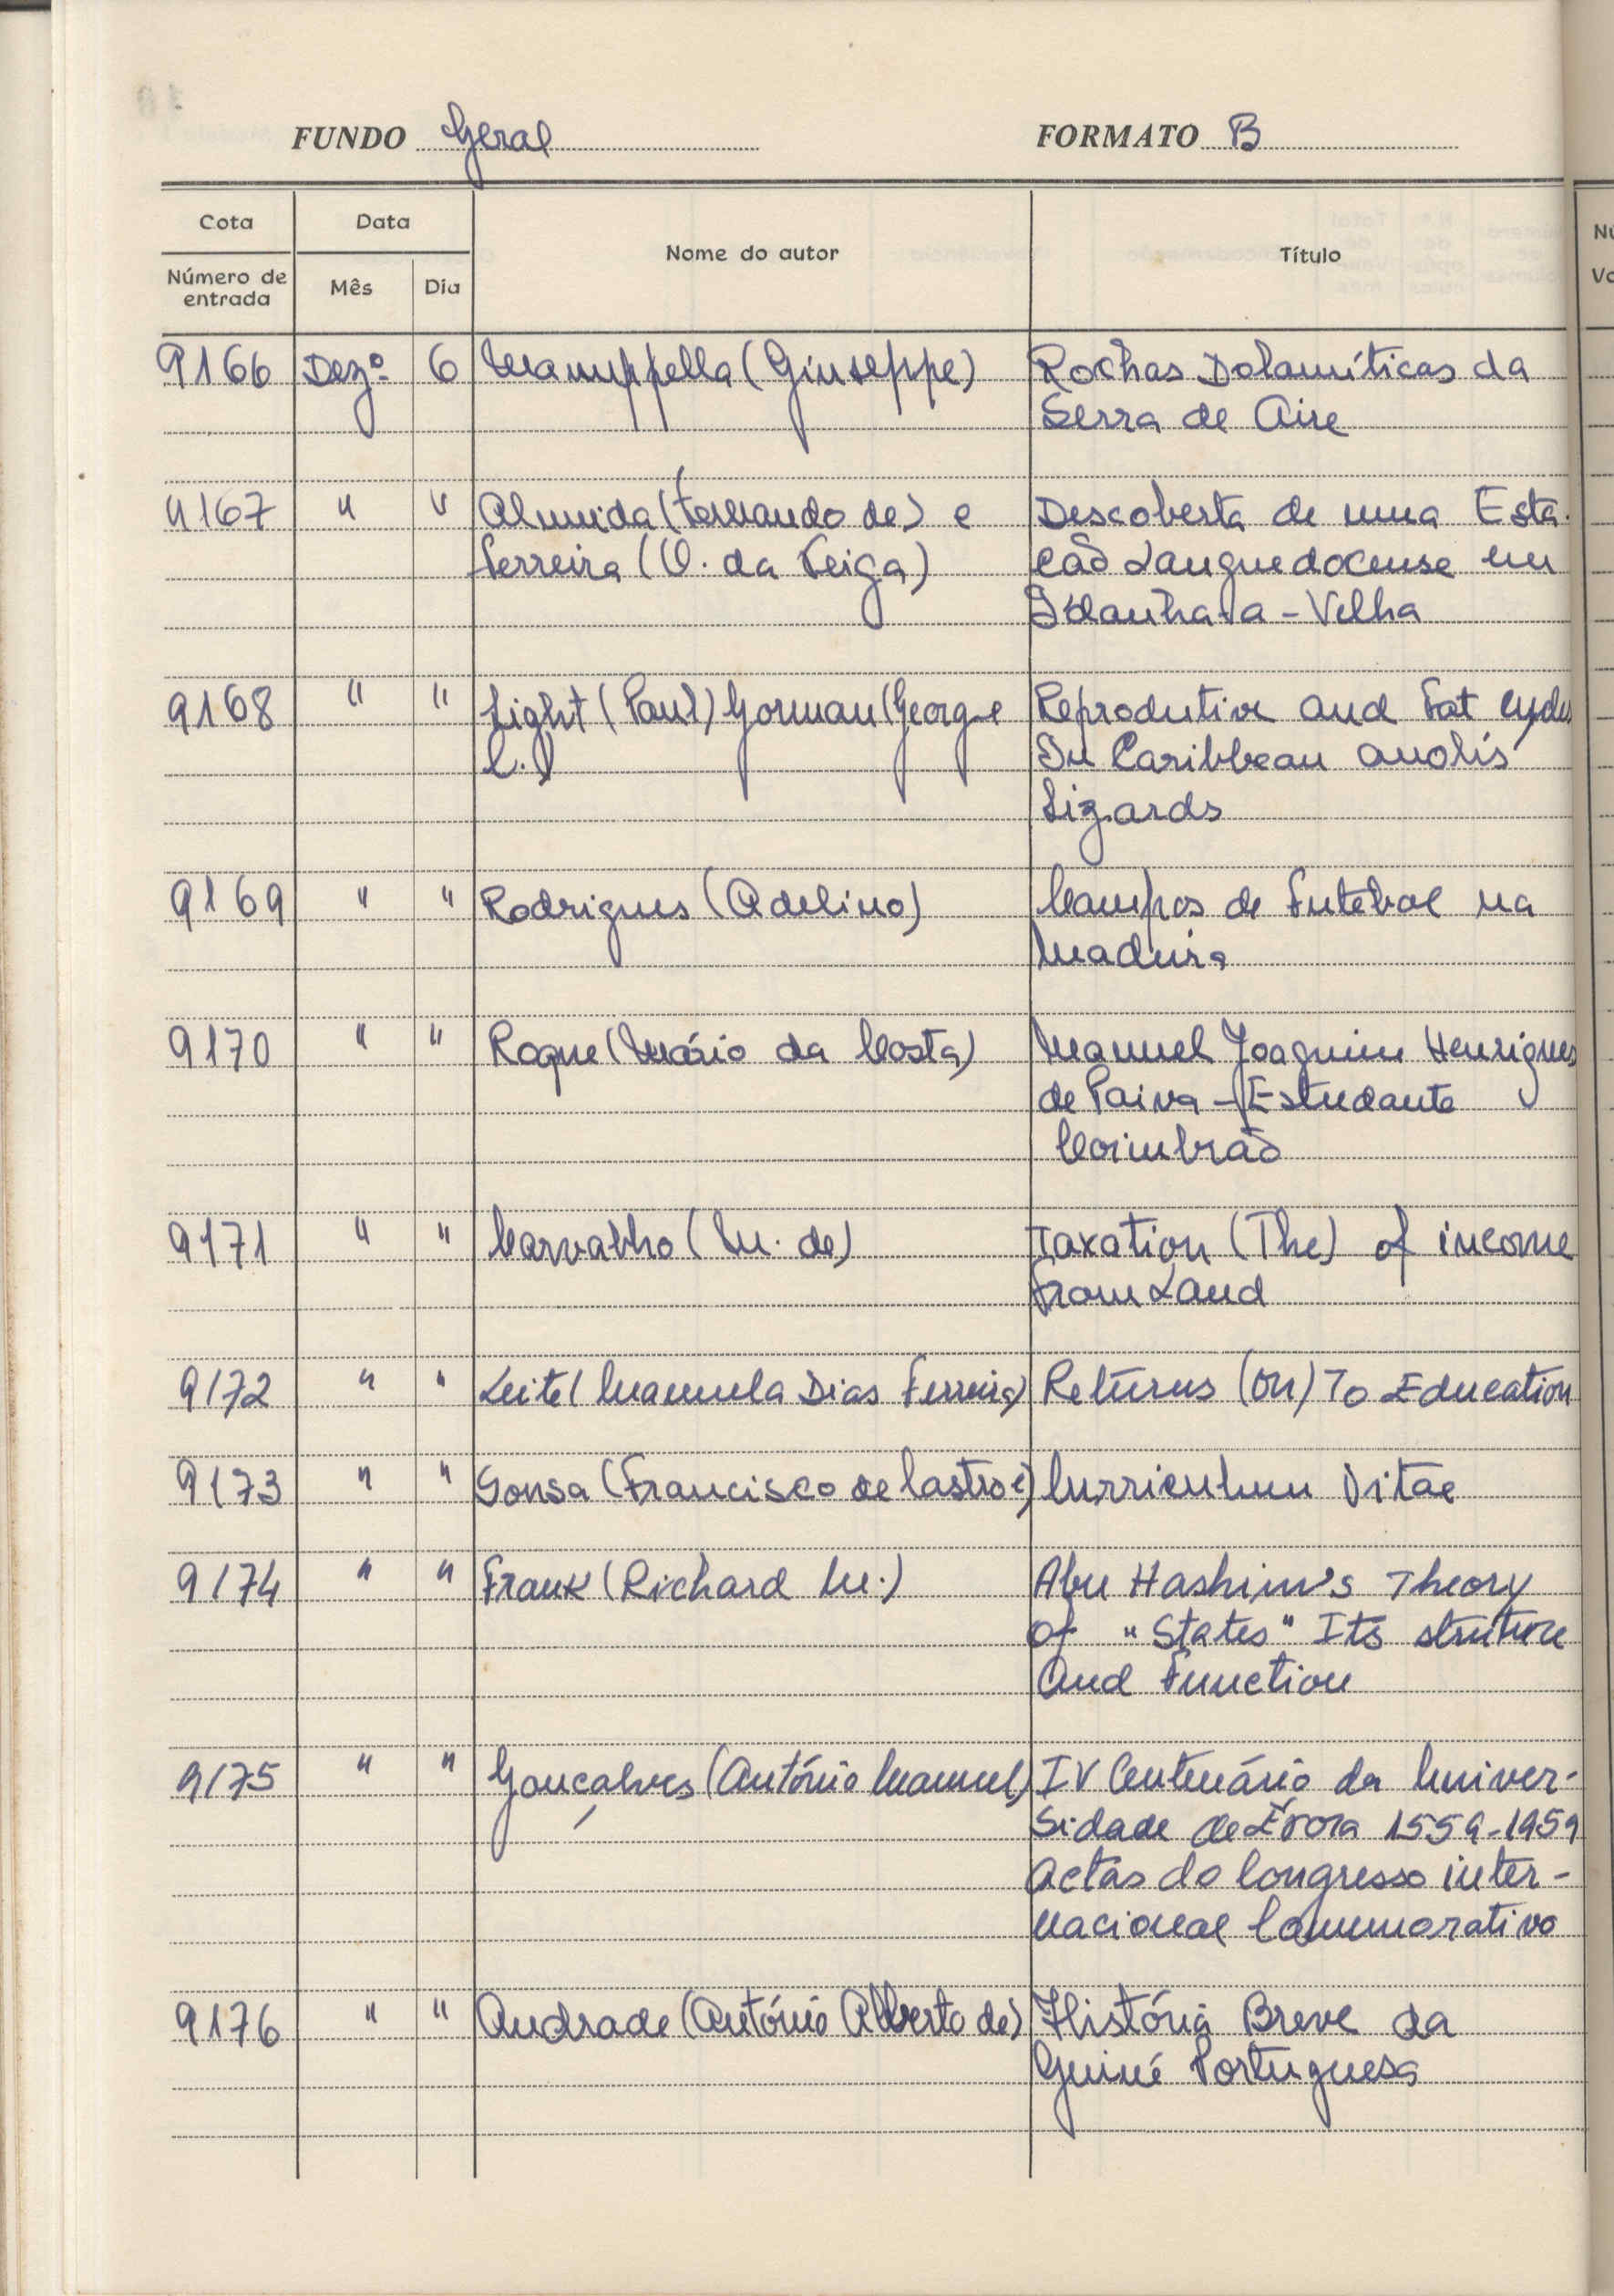 FUNDO Geral FORMATO B
Cota Data Nome do autor Título
Número de entrada Mês Dia
9166 Dezº 6 Manuppella (Giuseppe) Rochas Dolomíticas da
Serra de Aire
9167 " " Almeida (Fernando de) e Descoberta de uma Esta-
Ferreira (O. da Veiga) ção Languedocense em
Idanha-a-Velha
9168 " " Light (Paul) Gorman (George Reprodutive and Fat cycles
C.) In Caribbean anolis
Lizards
9169 " " Rodrigues (Adelino) Campos de Futebol na
Madeira
9170 " " Roque (Mário da Costa) Manuel Joaquim Henriques
de Paiva - Estudante
Coimbrão
9171 " " Carvalho (M. de) Taxation (The) of income
from Land
9172 " " Leite (Manuela Dias Ferreira) Returns (On) To Education
9173 " " Sousa (Francisco de Castro e) Curriculum Vitae
9174 " " Frank (Richard M.) Abu Hashim's Theory
of "States" Its struture
And Function
9175 " " Gonçalves (António Manuel) IV Centenário da Univer-
sidade de Évora 1559-1959
Actas do Congresso inter-
nacional Comemorativo
9176 " " Andrade (António Alberto de) História Breve da
Guiné Portuguesa